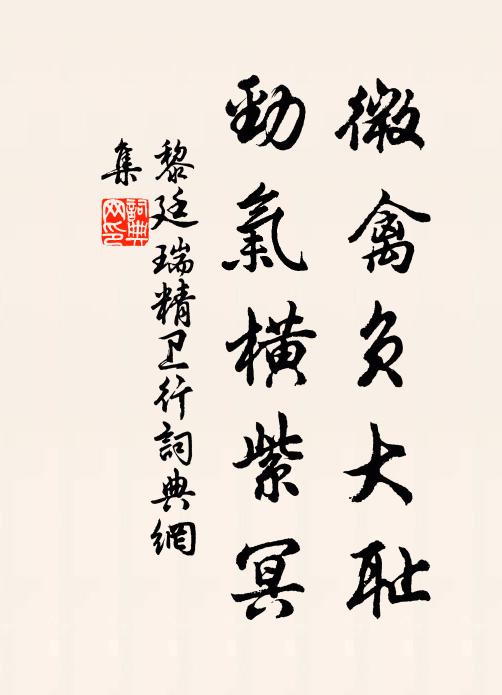 微禽负大耻
勁氣橫紫冥
黎廷瑞精卫行詞典網
集
詞典
网印